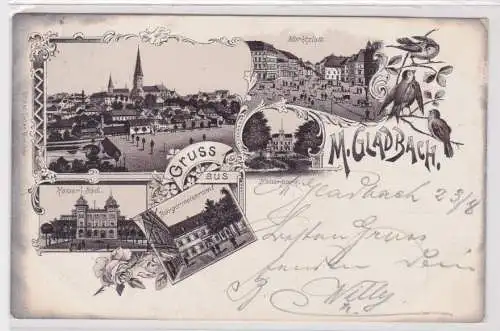 Marktplatz.
M. GLADBACH.
Gruss
aus
Kaiser-Bad.
Bürgermeisteramt
M Gladbach 23/8
Besten Gruss
senden Dein
Willy